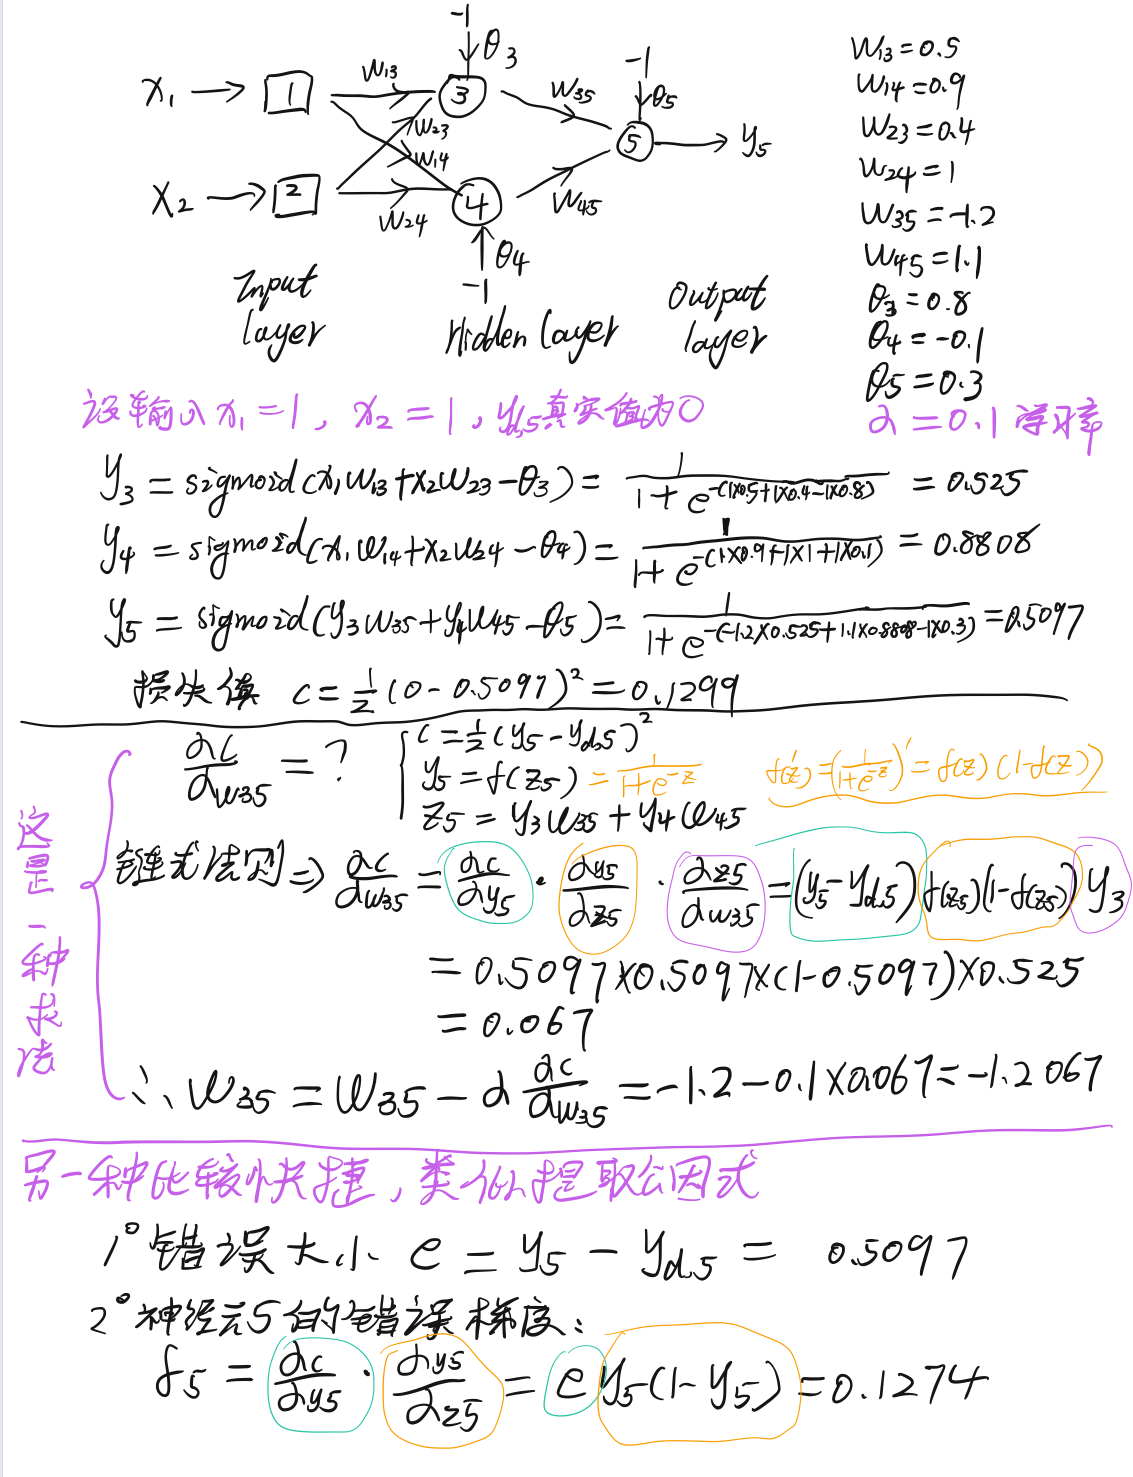 -1
θ3
x1 → 1 W13 3 W35 -1 θ5
W23
W14
5 → y5
x2 → 2 W24 4 W45
θ4
-1
Input layer
Hidden layer
Output layer
W13=0.5
W14=0.9
W23=0.4
W24=1
W35=-1.2
W45=1.1
θ3=0.8
θ4=-0.1
θ5=0.3
设输入x1=1, x2=1, yd,5真实值为0
α=0.1 学习率
y3 = sigmoid(x1W13+x2W23-θ3) = 1/(1+e^-(1×0.5+1×0.4-1×0.8)) = 0.525
y4 = sigmoid(x1W14+x2W24-θ4) = 1/(1+e^-(1×0.9+1×1+1×0.1)) = 0.8808
y5 = sigmoid(y3W35+y4W45-θ5) = 1/(1+e^-(-1.2×0.525+1.1×0.8808-1×0.3)) = 0.5097
损失值 c=1/2(0-0.5097)^2=0.1299
∂c/∂w35 = ?
c=1/2(y5-yd,5)^2
y5=f(z5) = 1/(1+e^-z)
f'(z)=(1/(1+e^-z))'=f(z)(1-f(z))
z5=y3w35+y4w45
这是一种求法
链式法则⇒ ∂c/∂w35 = ∂c/∂y5 · ∂y5/∂z5 · ∂z5/∂w35 = (y5-yd,5) f(z5)(1-f(z5)) y3
= 0.5097×0.5097×(1-0.5097)×0.525
= 0.067
∴ W35 = W35 - α ∂c/∂w35 = -1.2-0.1×0.067=-1.2067
另一种比较快捷,类似提取公因式
1° 错误大小 e = y5 - yd,5 = 0.5097
2° 神经元5的错误梯度:
δ5 = ∂c/∂y5 · ∂y5/∂z5 = e y5(1-y5) = 0.1274